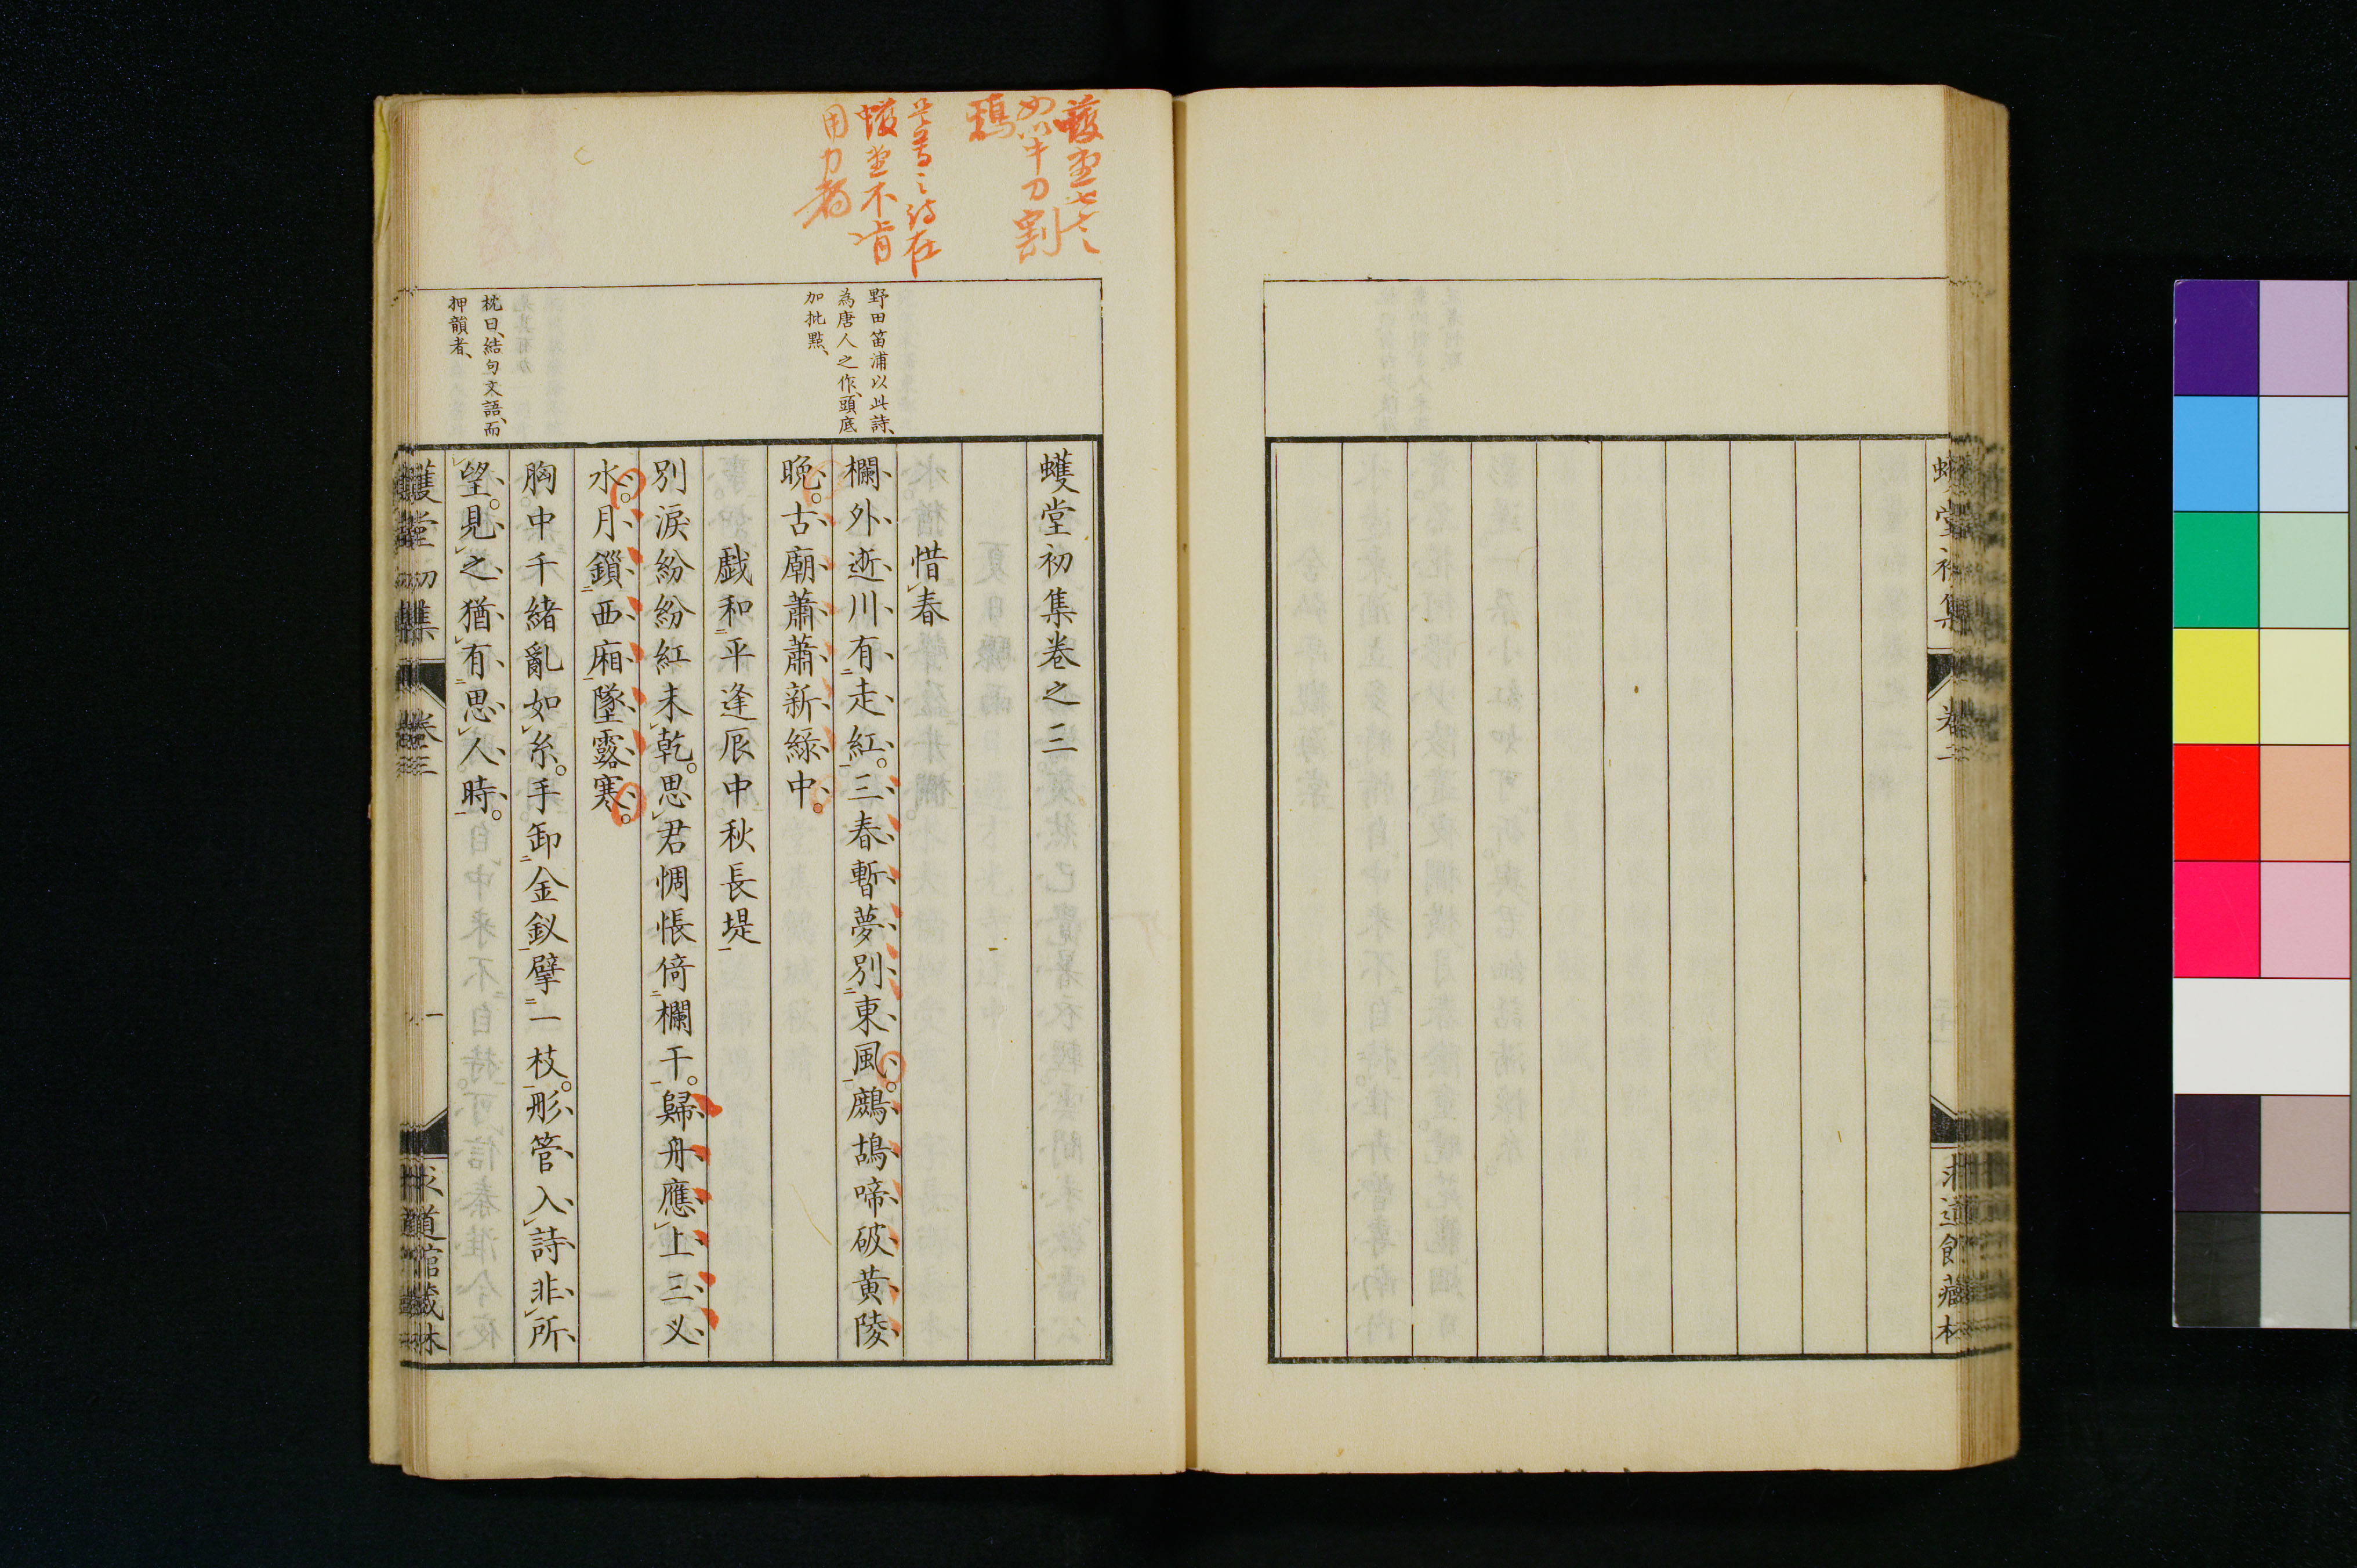 蠖堂初集
卷二
求道館藏梓
蠖堂七々
如以牛刀割
鶏
蠖堂不肯
用力者
野田笛浦以此詩、
為唐人之作、頭底
加批點、
枕曰、結句文語、而
押韻者、
蠖堂初集卷之三
惜春
欄外逝川有走紅。三春暫夢別東風。鷓鴣啼破黃陵
晩。古廟蕭蕭新綠中。
戯和平逢原中秋長堤
別淚紛紛紅未乾。思君惆悵倚欄干。歸舟應上三乂
水。月鎖西廂墜露寒。
胸中千緒亂如糸。手卸金釵擘一枝。彤管入詩非所
望。見之猶有思人時。
蠖堂初集
卷三
一
求道館藏梓